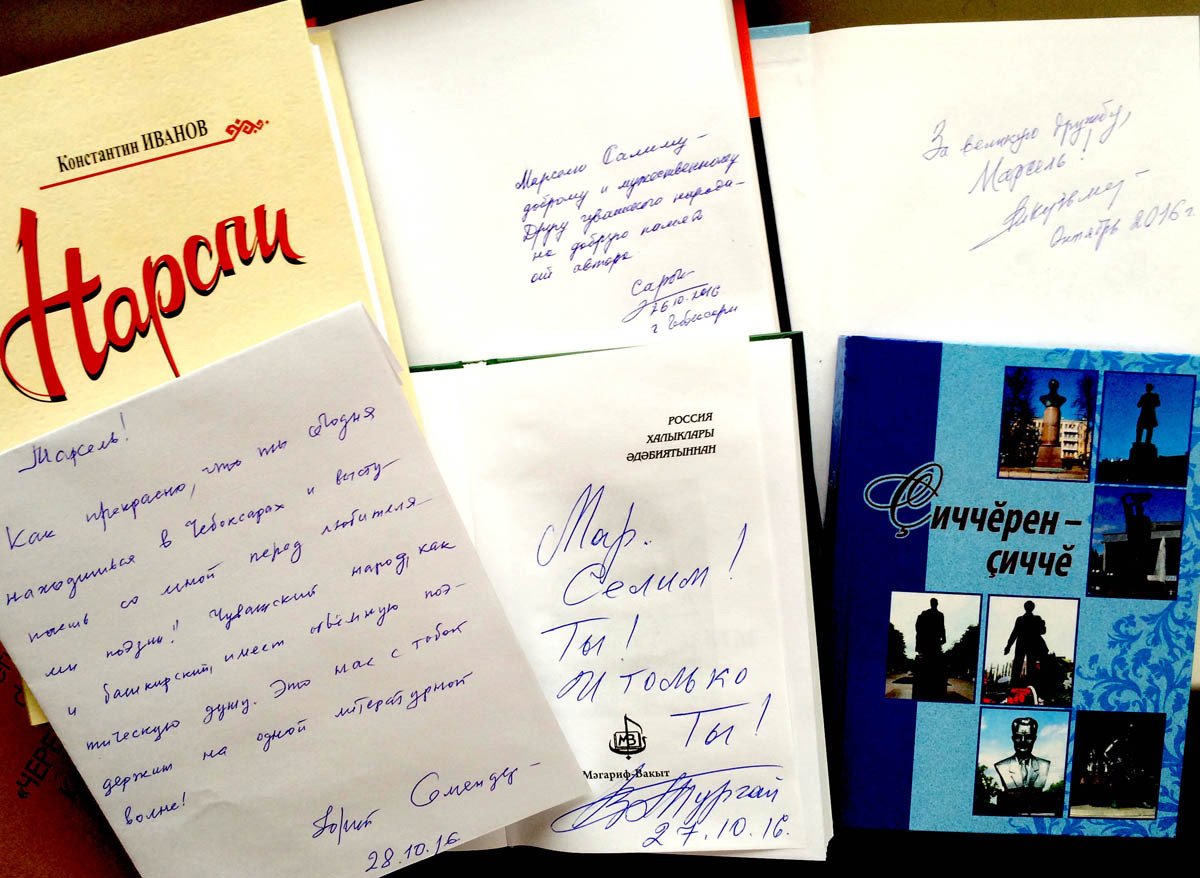 Константин ИВАНОВ
Нарспи
Марселю Салиму –
доброму и мужественному
Другу чувашского народа –
на добрую память
от автора
26.10.2016
г. Чебоксары
За великую дружбу,
Марсель!
Октябрь 2016 г
Марсель!
Как прекрасно, что ты сегодня
находишься в Чебоксарах и высту-
паешь со мной перед любителя-
ми поэзии! Чувашский народ, как
и башкирский, имеет объёмную поэ-
тическую душу. Это нас с тобой
держит на одной литературной
волне!
Юрий Сементер –
28.10.16.
РОССИЯ
ХАЛЫКЛАРЫ
ӘДӘБИЯТЫННАН
Мар.
Селим!
Ты!
И только
Ты!
МВ
Мәгариф-Вакыт
Тургай
27.10.16.
Ҫиччӗрен –
ҫиччӗ
«ЧЕРЕ